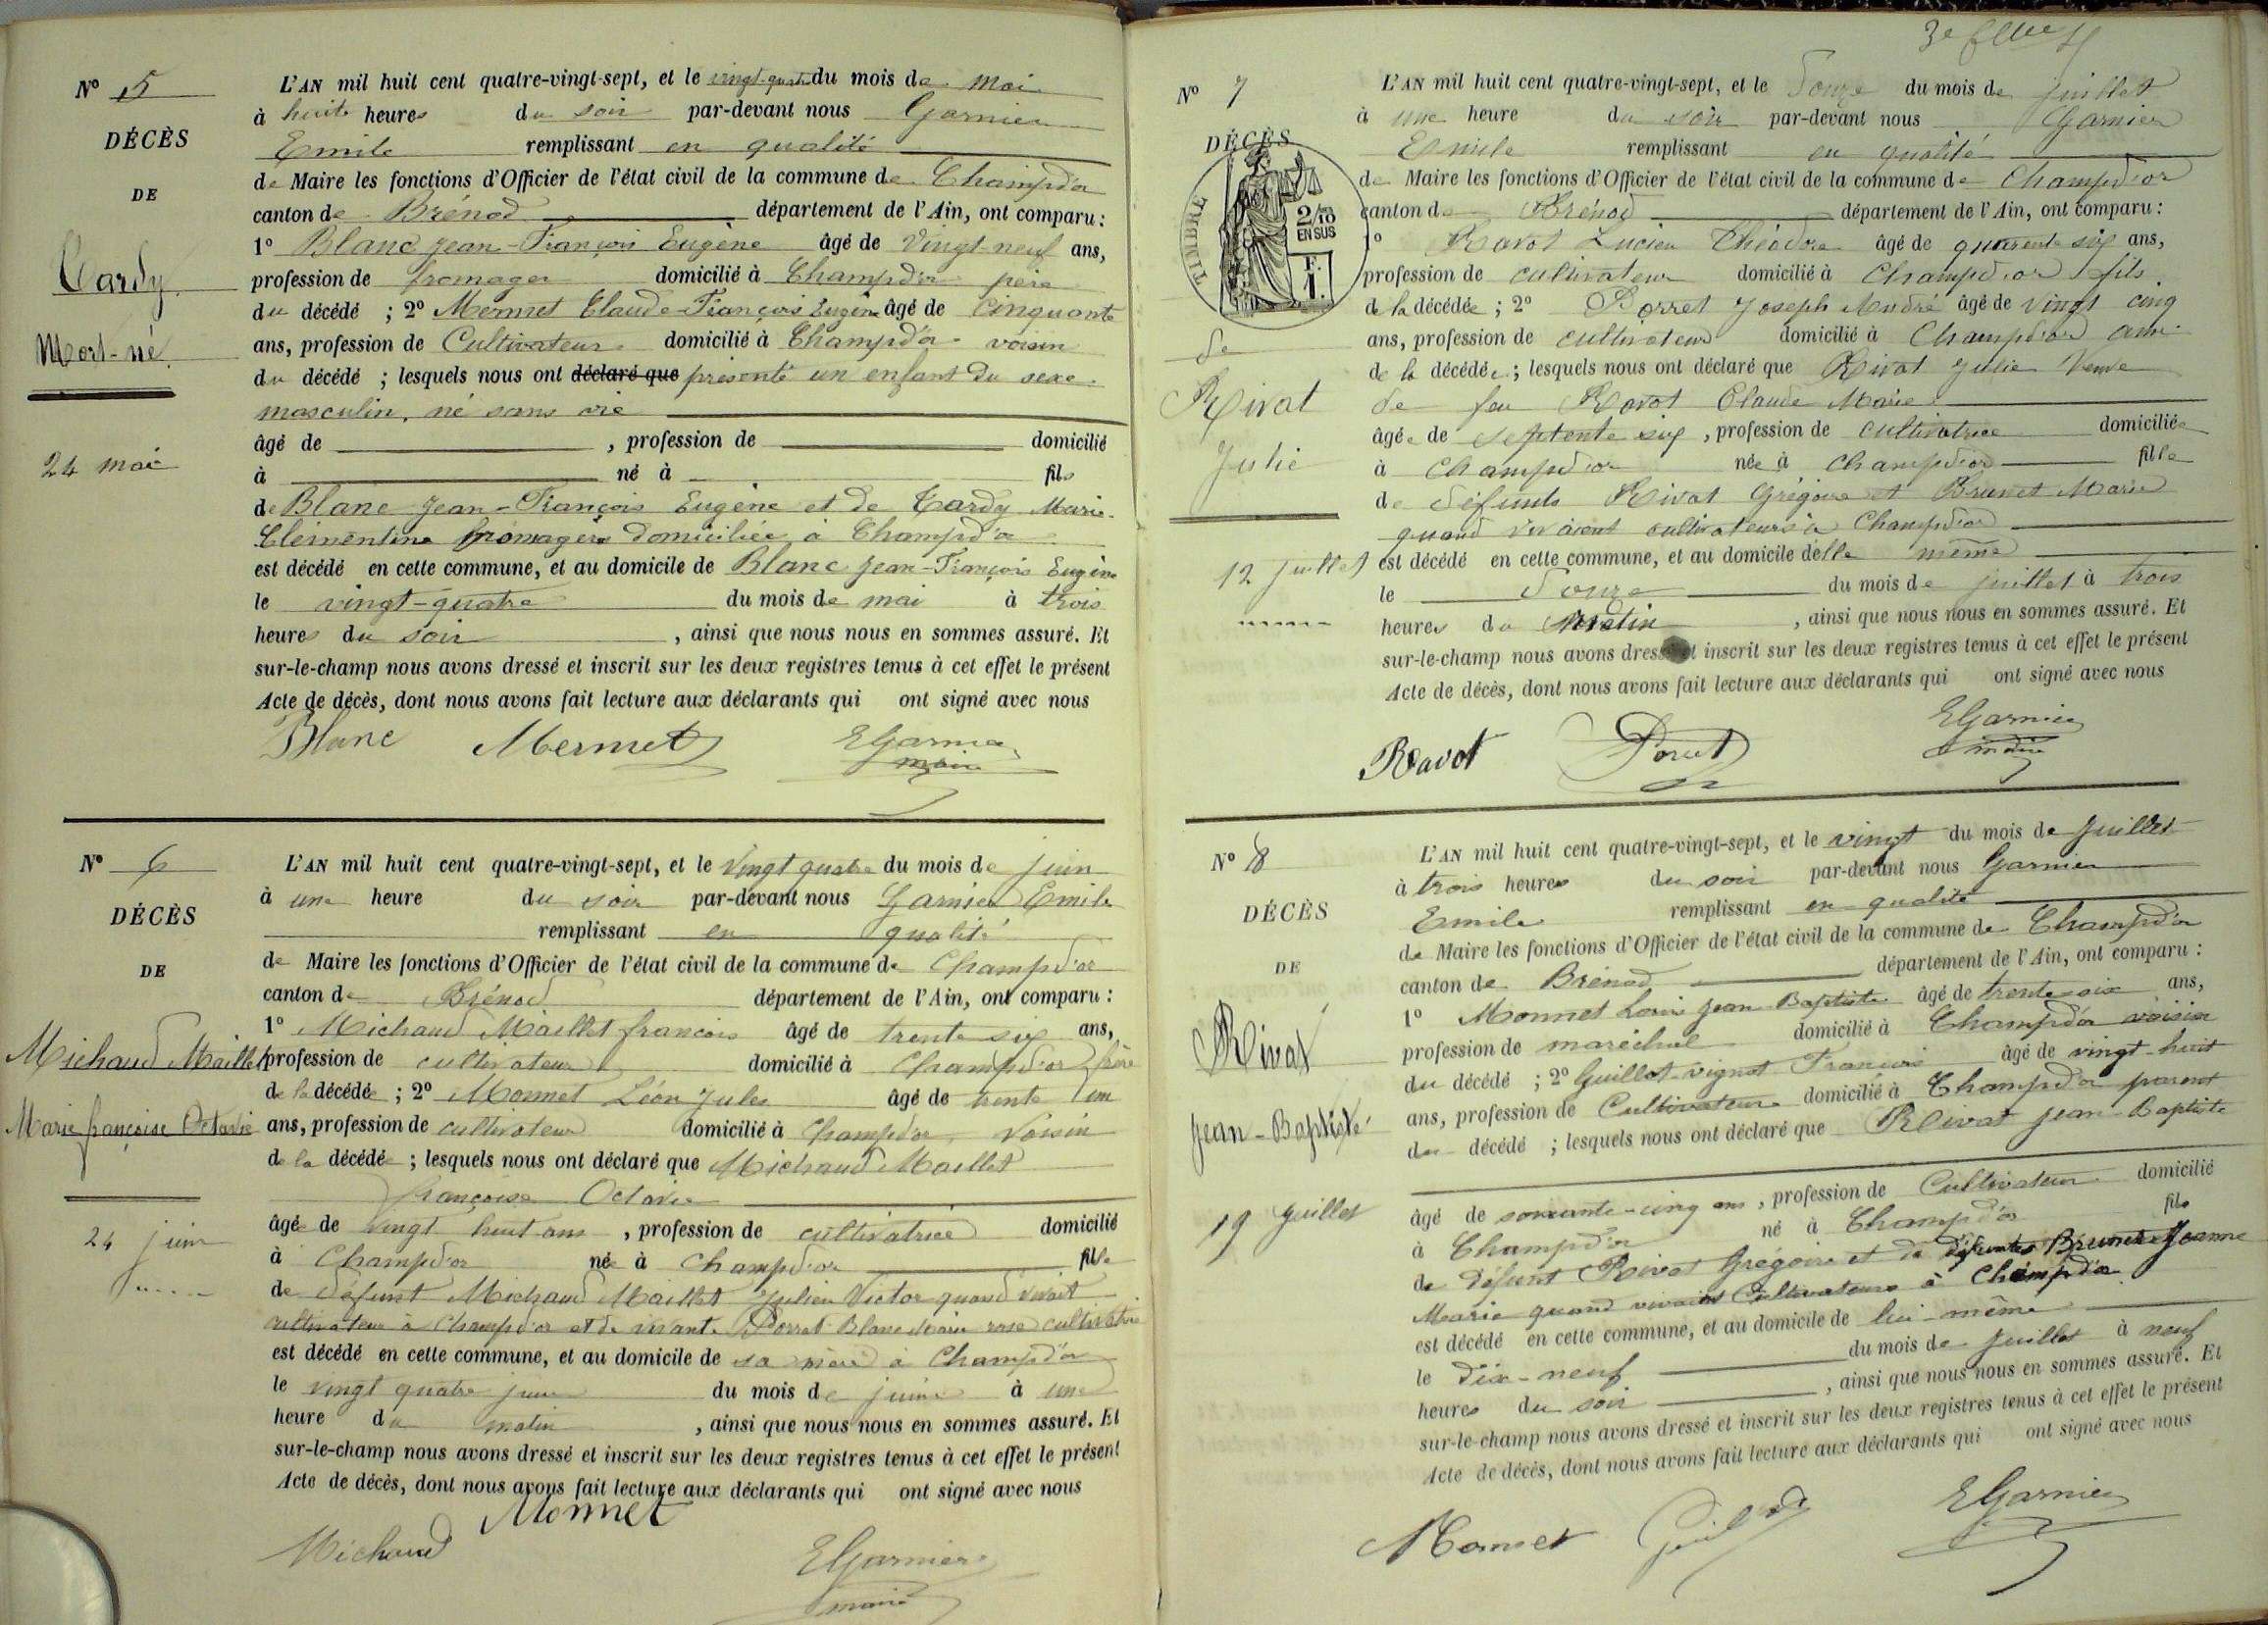 Nº 5
DÉCÈS
DE
Tardy
Mort-né
24 mai
L'AN mil huit cent quatre-vingt-sept, et le vingt-quatre du mois de mai
à huit heures du soir par-devant nous Garnier
Emile remplissant en qualité
de Maire les fonctions d'Officier de l'état civil de la commune de Champd'or
canton de Brénod département de l'Ain, ont comparu :
1º Blanc Jean-François Eugène âgé de Vingt-neuf ans,
profession de fromager domicilié à Champd'or père
du décédé ; 2º Mermet Claude-François Eugène âgé de cinquante
ans, profession de Cultivateur domicilié à Champd'or voisin
du décédé ; lesquels nous ont déclaré que présenté un enfant du sexe
masculin, né sans vie
âgé de , profession de domicilié
à né à fils
de Blanc Jean-François Eugène et de Tardy Marie
Clémentine fromagers domiciliée à Champd'or
est décédé en cette commune, et au domicile de Blanc Jean-François Eugène
le vingt-quatre du mois de mai à trois
heures du soir , ainsi que nous nous en sommes assuré. Et
sur-le-champ nous avons dressé et inscrit sur les deux registres tenus à cet effet le présent
Acte de décès, dont nous avons fait lecture aux déclarants qui ont signé avec nous
Blanc Mermet EGarnier
maire
Nº 6
DÉCÈS
DE
Michaud Maillet
Marie françoise Octavie
24 juin
L'AN mil huit cent quatre-vingt-sept, et le Vingt quatre du mois de juin
à une heure du soir par-devant nous Garnier Emile
remplissant en qualité
de Maire les fonctions d'Officier de l'état civil de la commune de Champd'or
canton de Brénod département de l'Ain, ont comparu :
1º Michaud Maillet françois âgé de trente six ans,
profession de cultivateur domicilié à Champd'or frère
de la décédée ; 2º Monnet Léon Jules âgé de trente un
ans, profession de cultivateur domicilié à Champd'or voisin
de la décédée ; lesquels nous ont déclaré que Michaud Maillet
françoise Octavie
âgé de vingt huit ans , profession de cultivatrice domicilié
à Champd'or née à Champd'or fille
de défunt Michaud Maillet Julien Victor quand vivait
cultivateur à Champd'or et de vivante Porret Blanc Marie rose cultivatrice
est décédé en cette commune, et au domicile de sa mère à Champd'or
le vingt quatre juin du mois de juin à une
heure du matin , ainsi que nous nous en sommes assuré. Et
sur-le-champ nous avons dressé et inscrit sur les deux registres tenus à cet effet le présent
Acte de décès, dont nous avons fait lecture aux déclarants qui ont signé avec nous
Monnet
Michaud EGarnier
maire
3e
Nº 7
DÉCÈS
TIMBRE
2/10
EN SUS
F.
1.
de
Rivat
Julie
12 juillet
L'AN mil huit cent quatre-vingt-sept, et le Douze du mois de juillet
à une heure du soir par-devant nous Garnier
Emile remplissant en qualité
de Maire les fonctions d'Officier de l'état civil de la commune de Champd'or
canton de Brénod département de l'Ain, ont comparu :
1º Ravot Lucien Théodore âgé de quarente six ans,
profession de cultivateur domicilié à Champd'or fils
de la décédée ; 2º Porret Joseph André âgé de vingt cinq
ans, profession de cultivateur domicilié à Champd'or ami
de la décédée ; lesquels nous ont déclaré que Rivat Julie Veuve
de feu Ravot Claude Marie
âgée de septente six , profession de cultivatrice domiciliée
à Champd'or née à Champd'or fille
de défunts Rivat Grégoire et Brunet Marie
quand vivaient cultivateurs à Champd'or
est décédé en cette commune, et au domicile delle même
le Douze du mois de juillet à trois
heures du matin , ainsi que nous nous en sommes assuré. Et
sur-le-champ nous avons dressé et inscrit sur les deux registres tenus à cet effet le présent
Acte de décès, dont nous avons fait lecture aux déclarants qui ont signé avec nous
Ravot Porret EGarnier
maire
Nº 8
DÉCÈS
DE
Rivat
Jean-Baptiste
19 Juillet
L'AN mil huit cent quatre-vingt-sept, et le vingt du mois de Juillet
à trois heures du soir par-devant nous Garnier
Emile remplissant en qualité
de Maire les fonctions d'Officier de l'état civil de la commune de Champd'or
canton de Brénod département de l'Ain, ont comparu :
1º Monnet Louis Jean Baptiste âgé de trente six ans,
profession de maréchal domicilié à Champd'or voisin
du décédé ; 2º Guillot-vignot François âgé de vingt-huit
ans, profession de Cultivateur domicilié à Champd'or parent
du décédé ; lesquels nous ont déclaré que Rivat Jean-Baptiste
âgé de soixante-cinq ans , profession de Cultivateur domicilié
à Champd'or né à Champd'or fils
de défunt Rivat Grégoire et de défunte Brunet Jeanne
Marie quand vivaient Cultivateurs à Champd'or
est décédé en cette commune, et au domicile de lui-même
le dix-neuf du mois de Juillet à neuf
heures du soir , ainsi que nous nous en sommes assuré. Et
sur-le-champ nous avons dressé et inscrit sur les deux registres tenus à cet effet le présent
Acte de décès, dont nous avons fait lecture aux déclarants qui ont signé avec nous
Monnet EGarnier